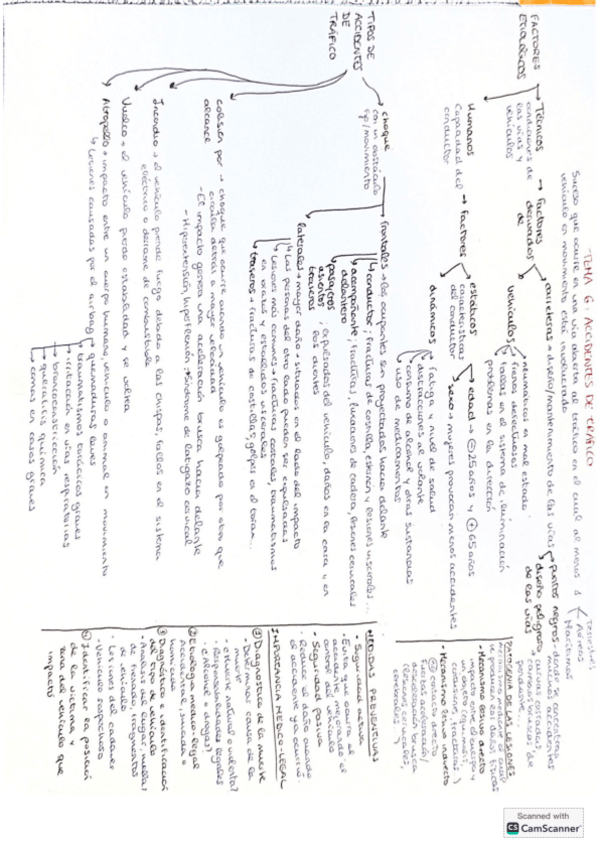 TEMA 6: ACCIDENTES DE TRÁFICO
Suceso que ocurre en una vía abierta al tráfico en el cual al menos 1
vehículo en movimiento está involucrado
Terrestres
Aéreos
Marítimos
FACTORES
ETIOLÓGICOS
Técnicos
condiciones de
las vías y
vehículos
→ Factores
derivados
de
carreteras → diseño/mantenimiento de las vías
puntos negros: donde se concentran
accidentes
diseño peligroso
de las vías
curvas cerradas,
cambios bruscos de
vehículos
neumáticos en mal estado
frenos defectuosos
fallos en el sistema de iluminación
problemas en la dirección
Humanos
Capacidad del
conductor
→ Factores
estáticos
características
del conductor
→ edad → ⊖ 25 años y ⊕ 65 años
sexo → mujeres provocan menos accidentes
dinámicos
fatiga y nivel de salud
distracciones al volante
consumo de alcohol y otras sustancias
uso de medicamentos
TIPOS DE
ACCIDENTES
DE
TRÁFICO
choque
con un obstáculo
fijo/movimiento
frontales → los ocupantes son proyectados hacia delante
conductor: fracturas de costilla, esternón y lesiones viscerales...
acompañante: fracturas, luxaciones de cadera, lesiones cervicales
delantero
pasajeros
asientos
traseros
expulsados del vehículo, daños en la cara y en
los dientes
laterales → mayor daño → situados en el lado del impacto
Las personas del otro lado pueden ser expulsadas
Lesiones más comunes → fracturas costales, traumatismos
en oculas y estallidos viscerales
traseros → fracturas de costillas, golpes en el tórax...
colisión por
alcance
→ choque que ocurre cuando un vehículo es golpeado por otro que
circula detrás a mayor velocidad
- El impacto genera una aceleración brusca hacia delante
- Hiperextensión, hipeflexión → Síndrome de latigazo cervical
Incendio → el vehículo prende fuego debido a las chispas, fallos en el sistema
eléctrico o derrame de combustible
Vuelco → el vehículo pierde estabilidad y se voltea
Atropello → impacto entre un cuerpo humano, vehículo o animal en movimiento
Lesiones causadas por el airbag
quemaduras leves
traumatismos torácicos graves
irritación en vías respiratorias
broncoconstricción
queratitis química
comas en casos graves
PATOGENIA DE LAS LESIONES
mecanismo mediante el cual
se producen los daños físicos
- Mecanismo lesivo directo
impacto entre el cuerpo y
un objeto (contusiones, fracturas)
- Mecanismo lesivo indirecto
no contacto directo
fuerzas aceleración/
desaceleración brusca
(lesiones cervicales,
cerebrales)
MEDIDAS PREVENTIVAS
- Seguridad activa
Evita que ocurra el
accidente mejorando el
control del vehículo
- Seguridad pasiva
Reduce el daño cuando
el accidente ya ocurrió
IMPORTANCIA MEDICO-LEGAL
① Diagnóstico de la muerte
- Determinar causa de la
muerte
¿muerte natural o violenta?
- Responsabilidades legales
¿Alcohol o drogas?
② Etiología medico-legal
accidente, suicida o
homicida
③ Diagnóstico e identificación
del tipo de vehículo
- Análisis del lugar, huellas
de frenado, fragmentos
de vehículo
- Lesiones del cadáver
- Vehículo sospechoso
④ Identificar la posición
de la víctima y
zona del vehículo que
impactó
Scanned with
CS CamScanner